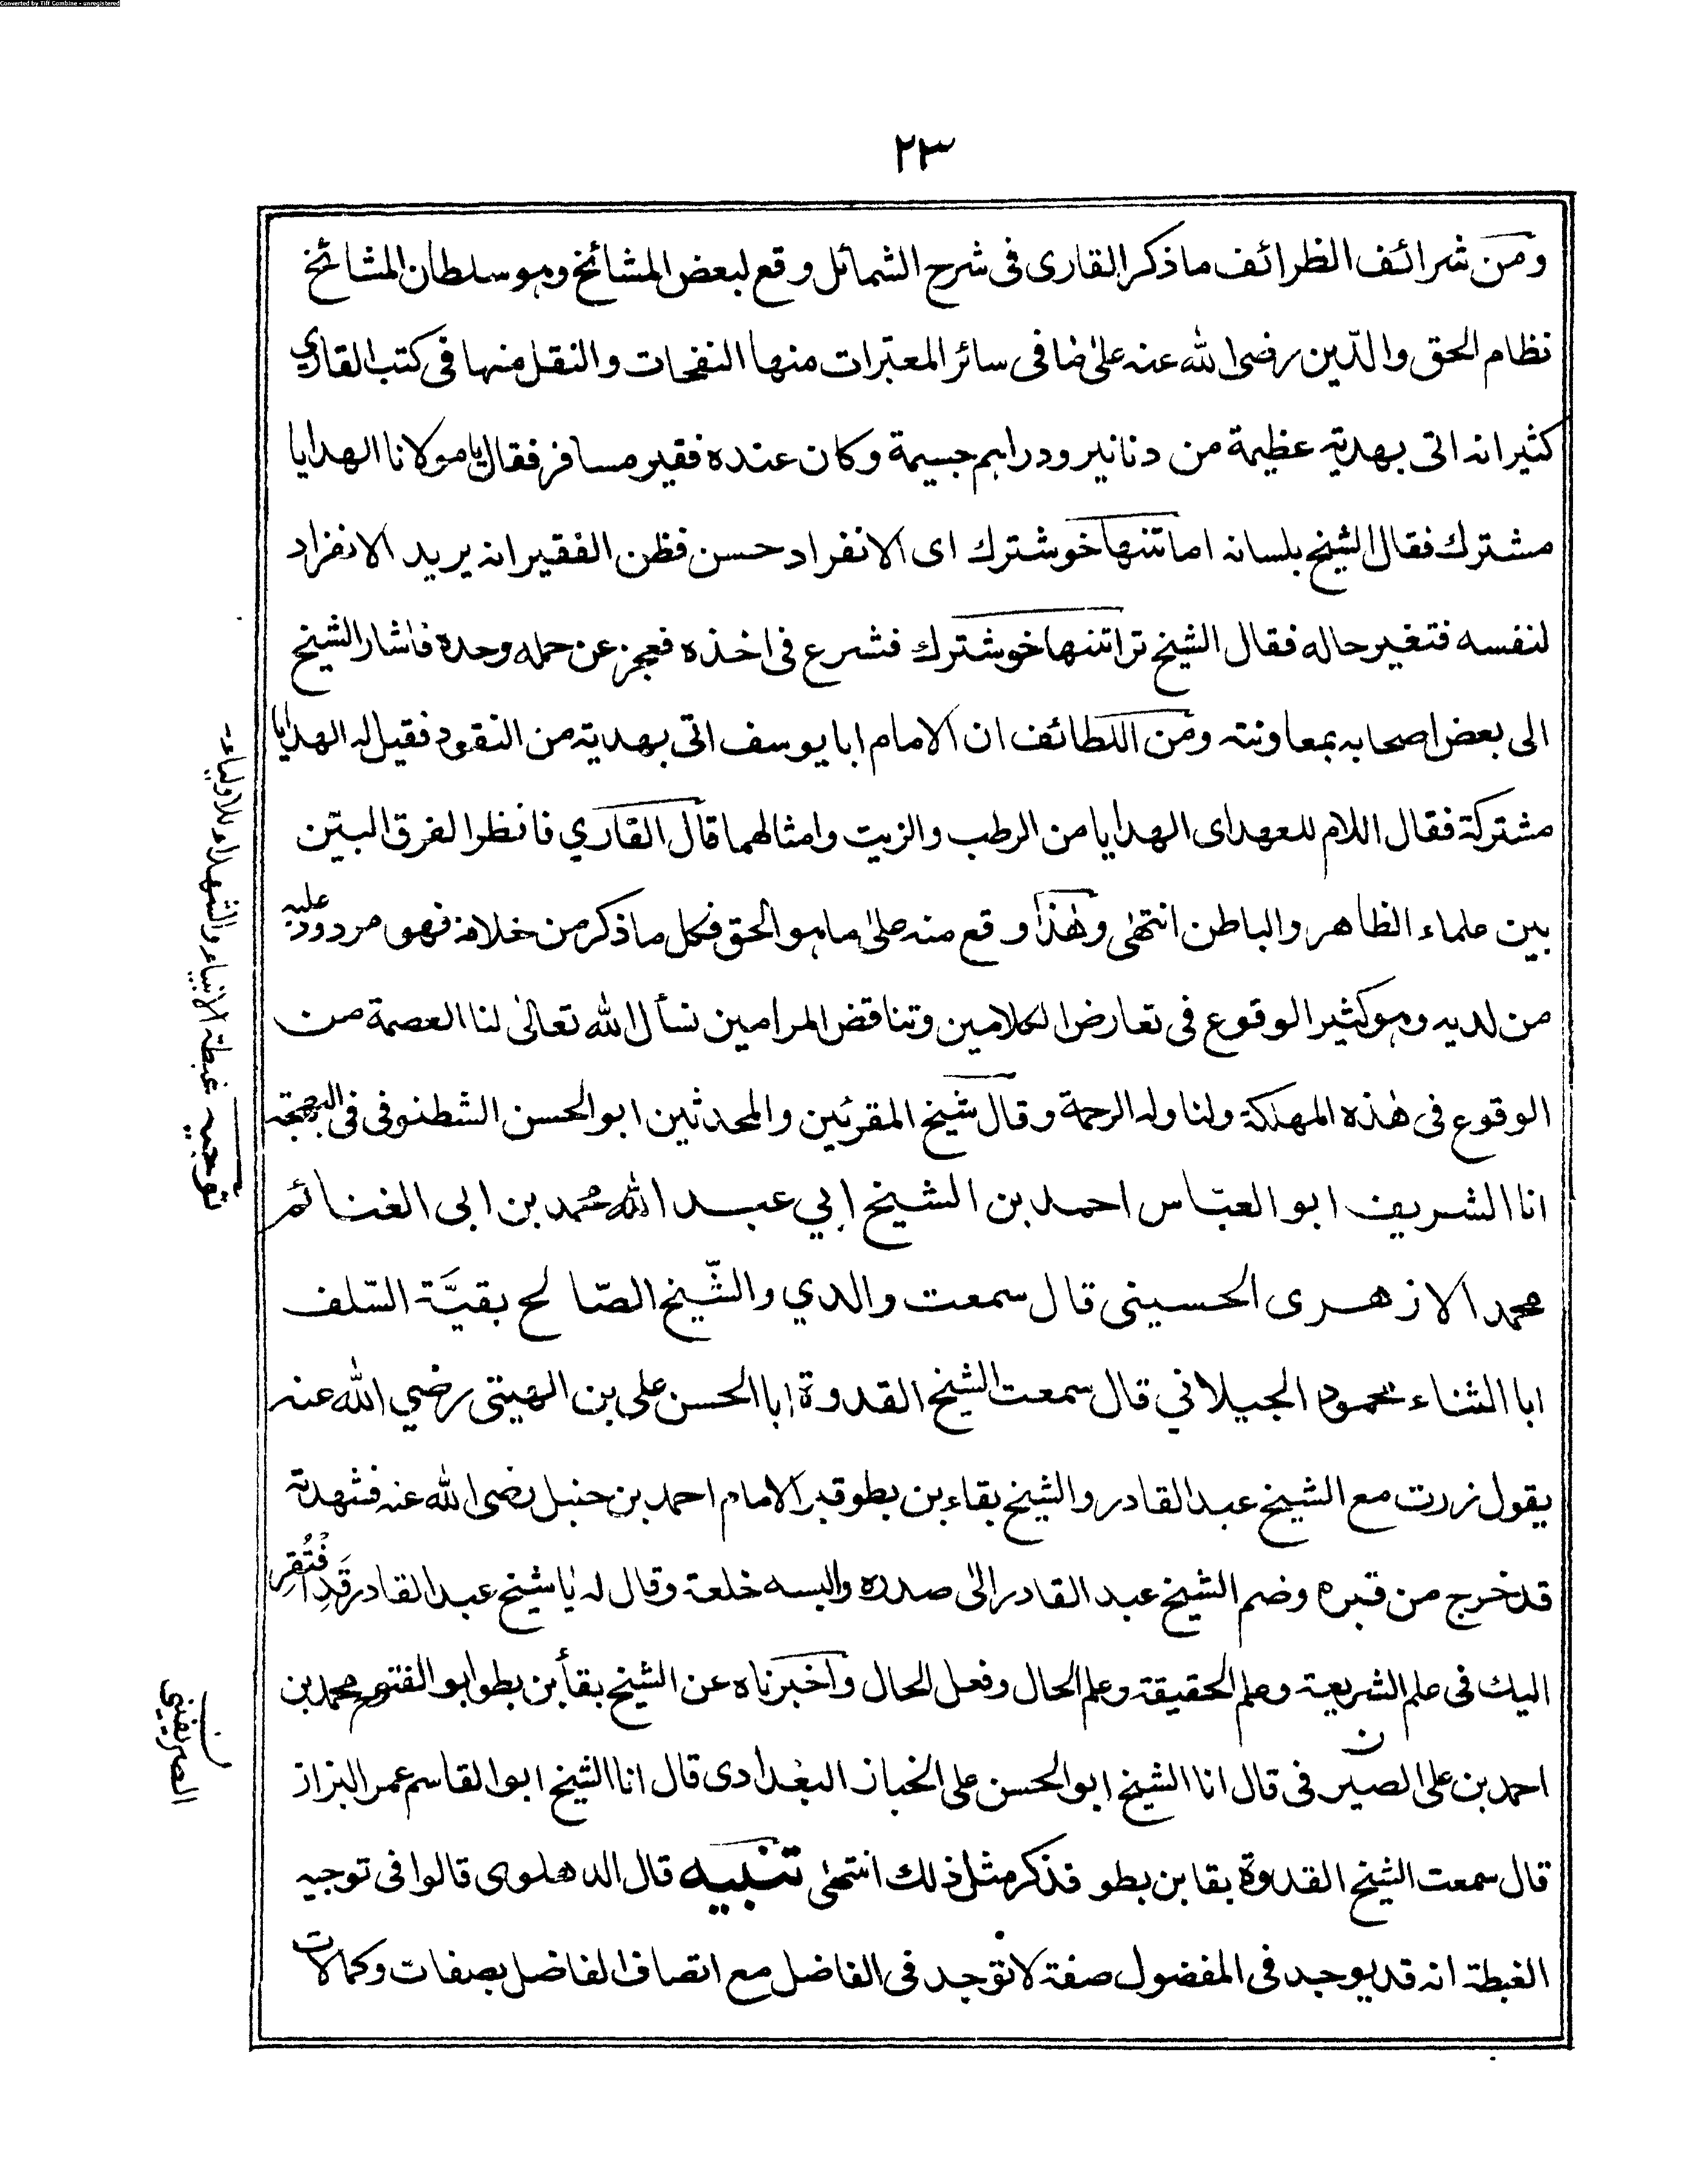 Converted by Tiff Combine - unregistered
٢٣
ومن شرائف الظرائف ماذكر القارى فى شرح الشمائل وقع لبعض المشائخ وهو سلطان المشائخ
نظام الحق والدّين رضى الله عنه على ما فى سائر المعتبرات منها النفحات والنقل منها فى كتب القاري
كثير انه اتى بهدية عظيمة من دنانير ودراهم جسيمة وكان عنده فقير مسافر فقال يا مولانا الهدايا
مشترك فقال الشيخ بلسانه اما تنها خوشترك اى الانفراد حسن فظن الفقير انه يريد الانفراد
لنفسه فتغير حاله فقال الشيخ ترا تنها خوشترك فشرع فى اخذه فعجز عن حمله وحده فاشار الشيخ
الى بعض اصحابه بمعاونته ومن اللطائف ان الامام ابا يوسف اتى بهدية من النقود فقيل له الهدايا
مشتركة فقال اللام للعهد اى الهدايا من الرطب والزيت وامثالهما قال القاري فانظر الفرق البيّن
بين علماء الظاهر والباطن انتهى وهٰذا وقع منه على ما هو الحق فكل ما ذكر من خلافه فهو مردود عليه
من لديه وهو كثير الوقوع فى تعارض الكلامين وتناقض المرامين نسأل الله تعالى لنا العصمة من
الوقوع فى هٰذه المهلكة ولنا وله الرحمة وقال شيخ المقرئين والمحدثين ابو الحسن الشطنوفى فى البهجة
انا الشريف ابو العبّاس احمد بن الشيخ ابي عبد الله محمد بن ابى الغنائم
محمد الازهرى الحسينى قال سمعت والدي والشّيخ الصّالح بقيَّة السّلف
ابا الثناء محمود الجيلاني قال سمعت الشيخ القدوة ابا الحسن على بن الهيتى رضي الله عنه
يقول زرت مع الشيخ عبد القادر والشيخ بقاء بن بطو قبر الامام احمد بن حنبل رضى الله عنه فشهدته
قد خرج من قبره وضم الشيخ عبد القادر الى صدره والبسه خلعة وقال له يا شيخ عبد القادر قد افتُقِر
اليك فى علم الشريعة وعلم الحقيقة وعلم الحال وفعل الحال واخبرناه عن الشيخ بقأ بن بطو ابو الفتح محمد بن
احمد بن على الصير فى قال انا الشيخ ابو الحسن على الخباز البغدادى قال انا الشيخ ابو القاسم عمر البزاز
قال سمعت الشيخ القدوة بقا بن بطو فذكر مثل ذلك انتهى تنبيه قال الدهلوى قالوا فى توجيه
الغبطة انه قد يوجد فى المفضول صفة لا توجد فى الفاضل مع اتصاف الفاضل بصفات وكمالات
توجيه غبطة الانبياء والشهداء للاولياء
الصريفينى